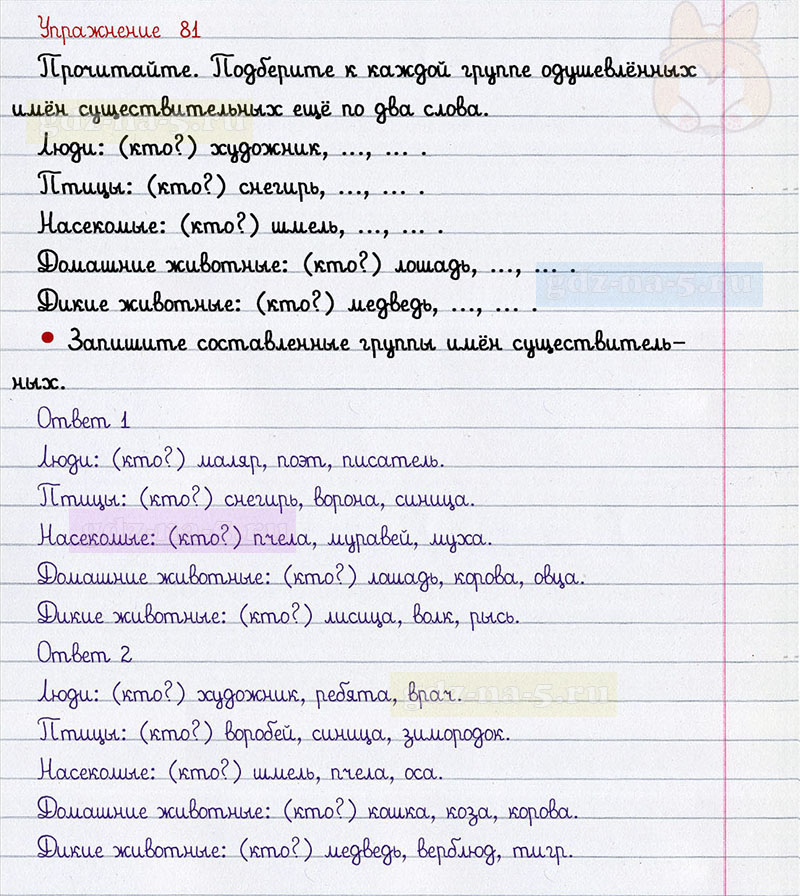 Упражнение 81
Прочитайте. Подберите к каждой группе одушевлённых
имён существительных ещё по два слова.
Люди: (кто?) художник, ..., ... .
Птицы: (кто?) снегирь, ..., ... .
Насекомые: (кто?) шмель, ..., ... .
Домашние животные: (кто?) лошадь, ..., ... .
gdz-na-5.ru
Дикие животные: (кто?) медведь, ..., ... .
• Запишите составленные группы имён существитель-
ных.
Ответ 1
Люди: (кто?) маляр, поэт, писатель.
Птицы: (кто?) снегирь, ворона, синица.
Насекомые: (кто?) пчела, муравей, муха.
Домашние животные: (кто?) лошадь, корова, овца.
Дикие животные: (кто?) лисица, волк, рысь.
Ответ 2
Люди: (кто?) художник, ребята, врач.
gdz-na-5.ru
Птицы: (кто?) воробей, синица, зимородок.
Насекомые: (кто?) шмель, пчела, оса.
Домашние животные: (кто?) кошка, коза, корова.
Дикие животные: (кто?) медведь, верблюд, тигр.